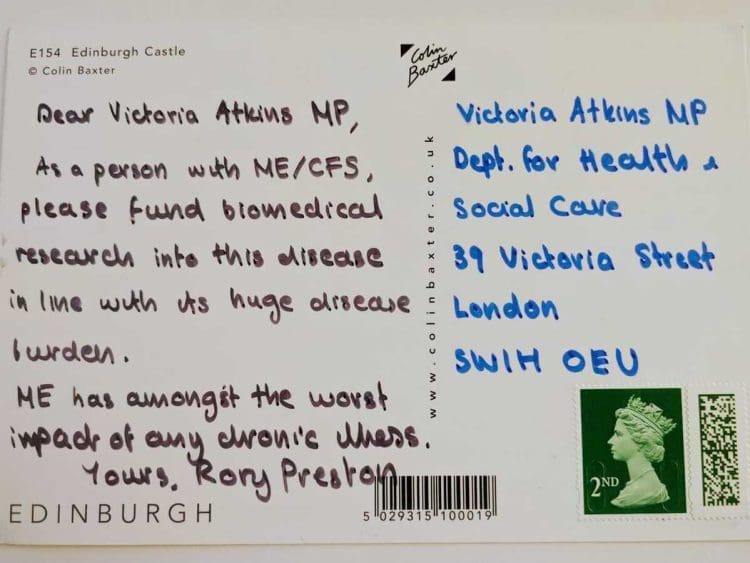 E154 Edinburgh Castle
© Colin Baxter
Colin
Baxter
Dear Victoria Atkins MP,
As a person with ME/CFS,
please fund biomedical
research into this disease
in line with its huge disease
burden.
ME has amongst the worst
impact of any chronic illness.
Yours, Rory Preston
EDINBURGH
www.colinbaxter.co.uk
Victoria Atkins MP
Dept. for Health &
Social Care
39 Victoria Street
London
SW1H OEU
2ND
5 029315 100019